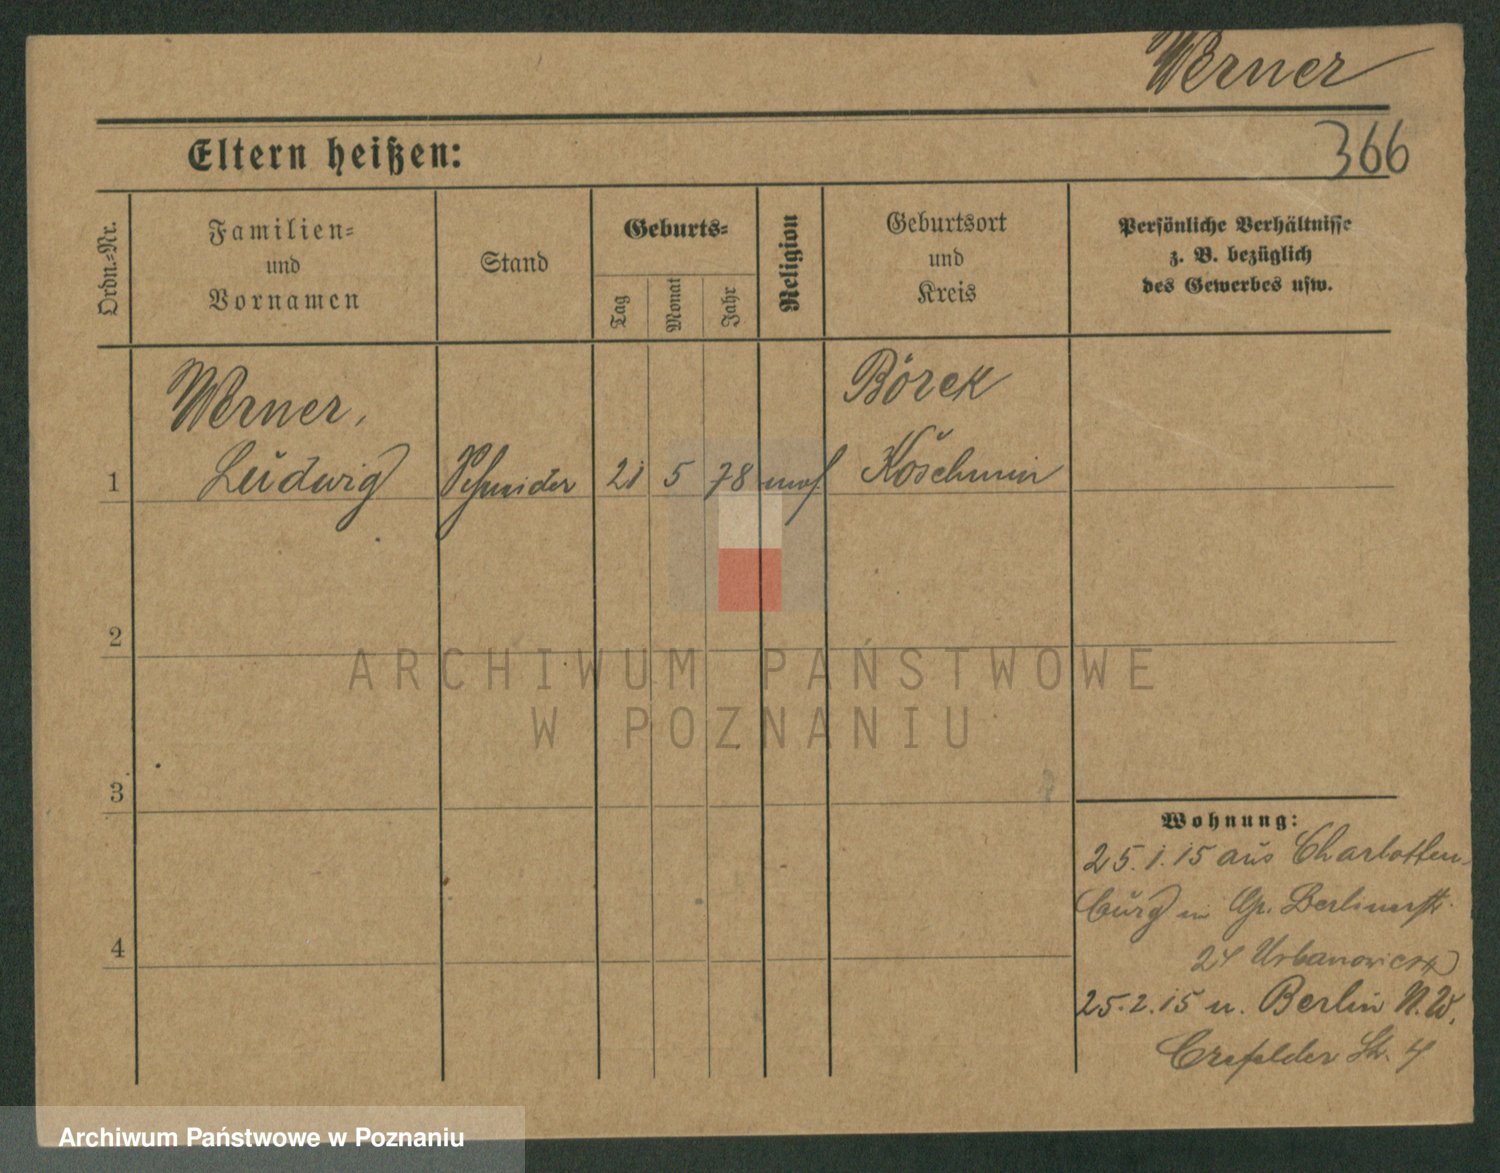 Werner
366
Eltern heißen:
Ordn.-Nr.
Familien-
und
Vornamen
Stand
Geburts-
Tag
Monat
Jahr
Religion
Geburtsort
und
Kreis
Persönliche Verhältnisse
z. B. bezüglich
des Gewerbes usw.
Werner,
Ludwig
1
Schneider
21
5
78
mos
Borek
Koschmin
2
3
4
Wohnung:
25.1.15 aus Charlotten-
burg in Berlinerstr.
24 Urbanowicz
25.2.15 n. Berlin N.W.
Crefelder St. 4
ARCHIWUM PAŃSTWOWE
W POZNANIU
Archiwum Państwowe w Poznaniu